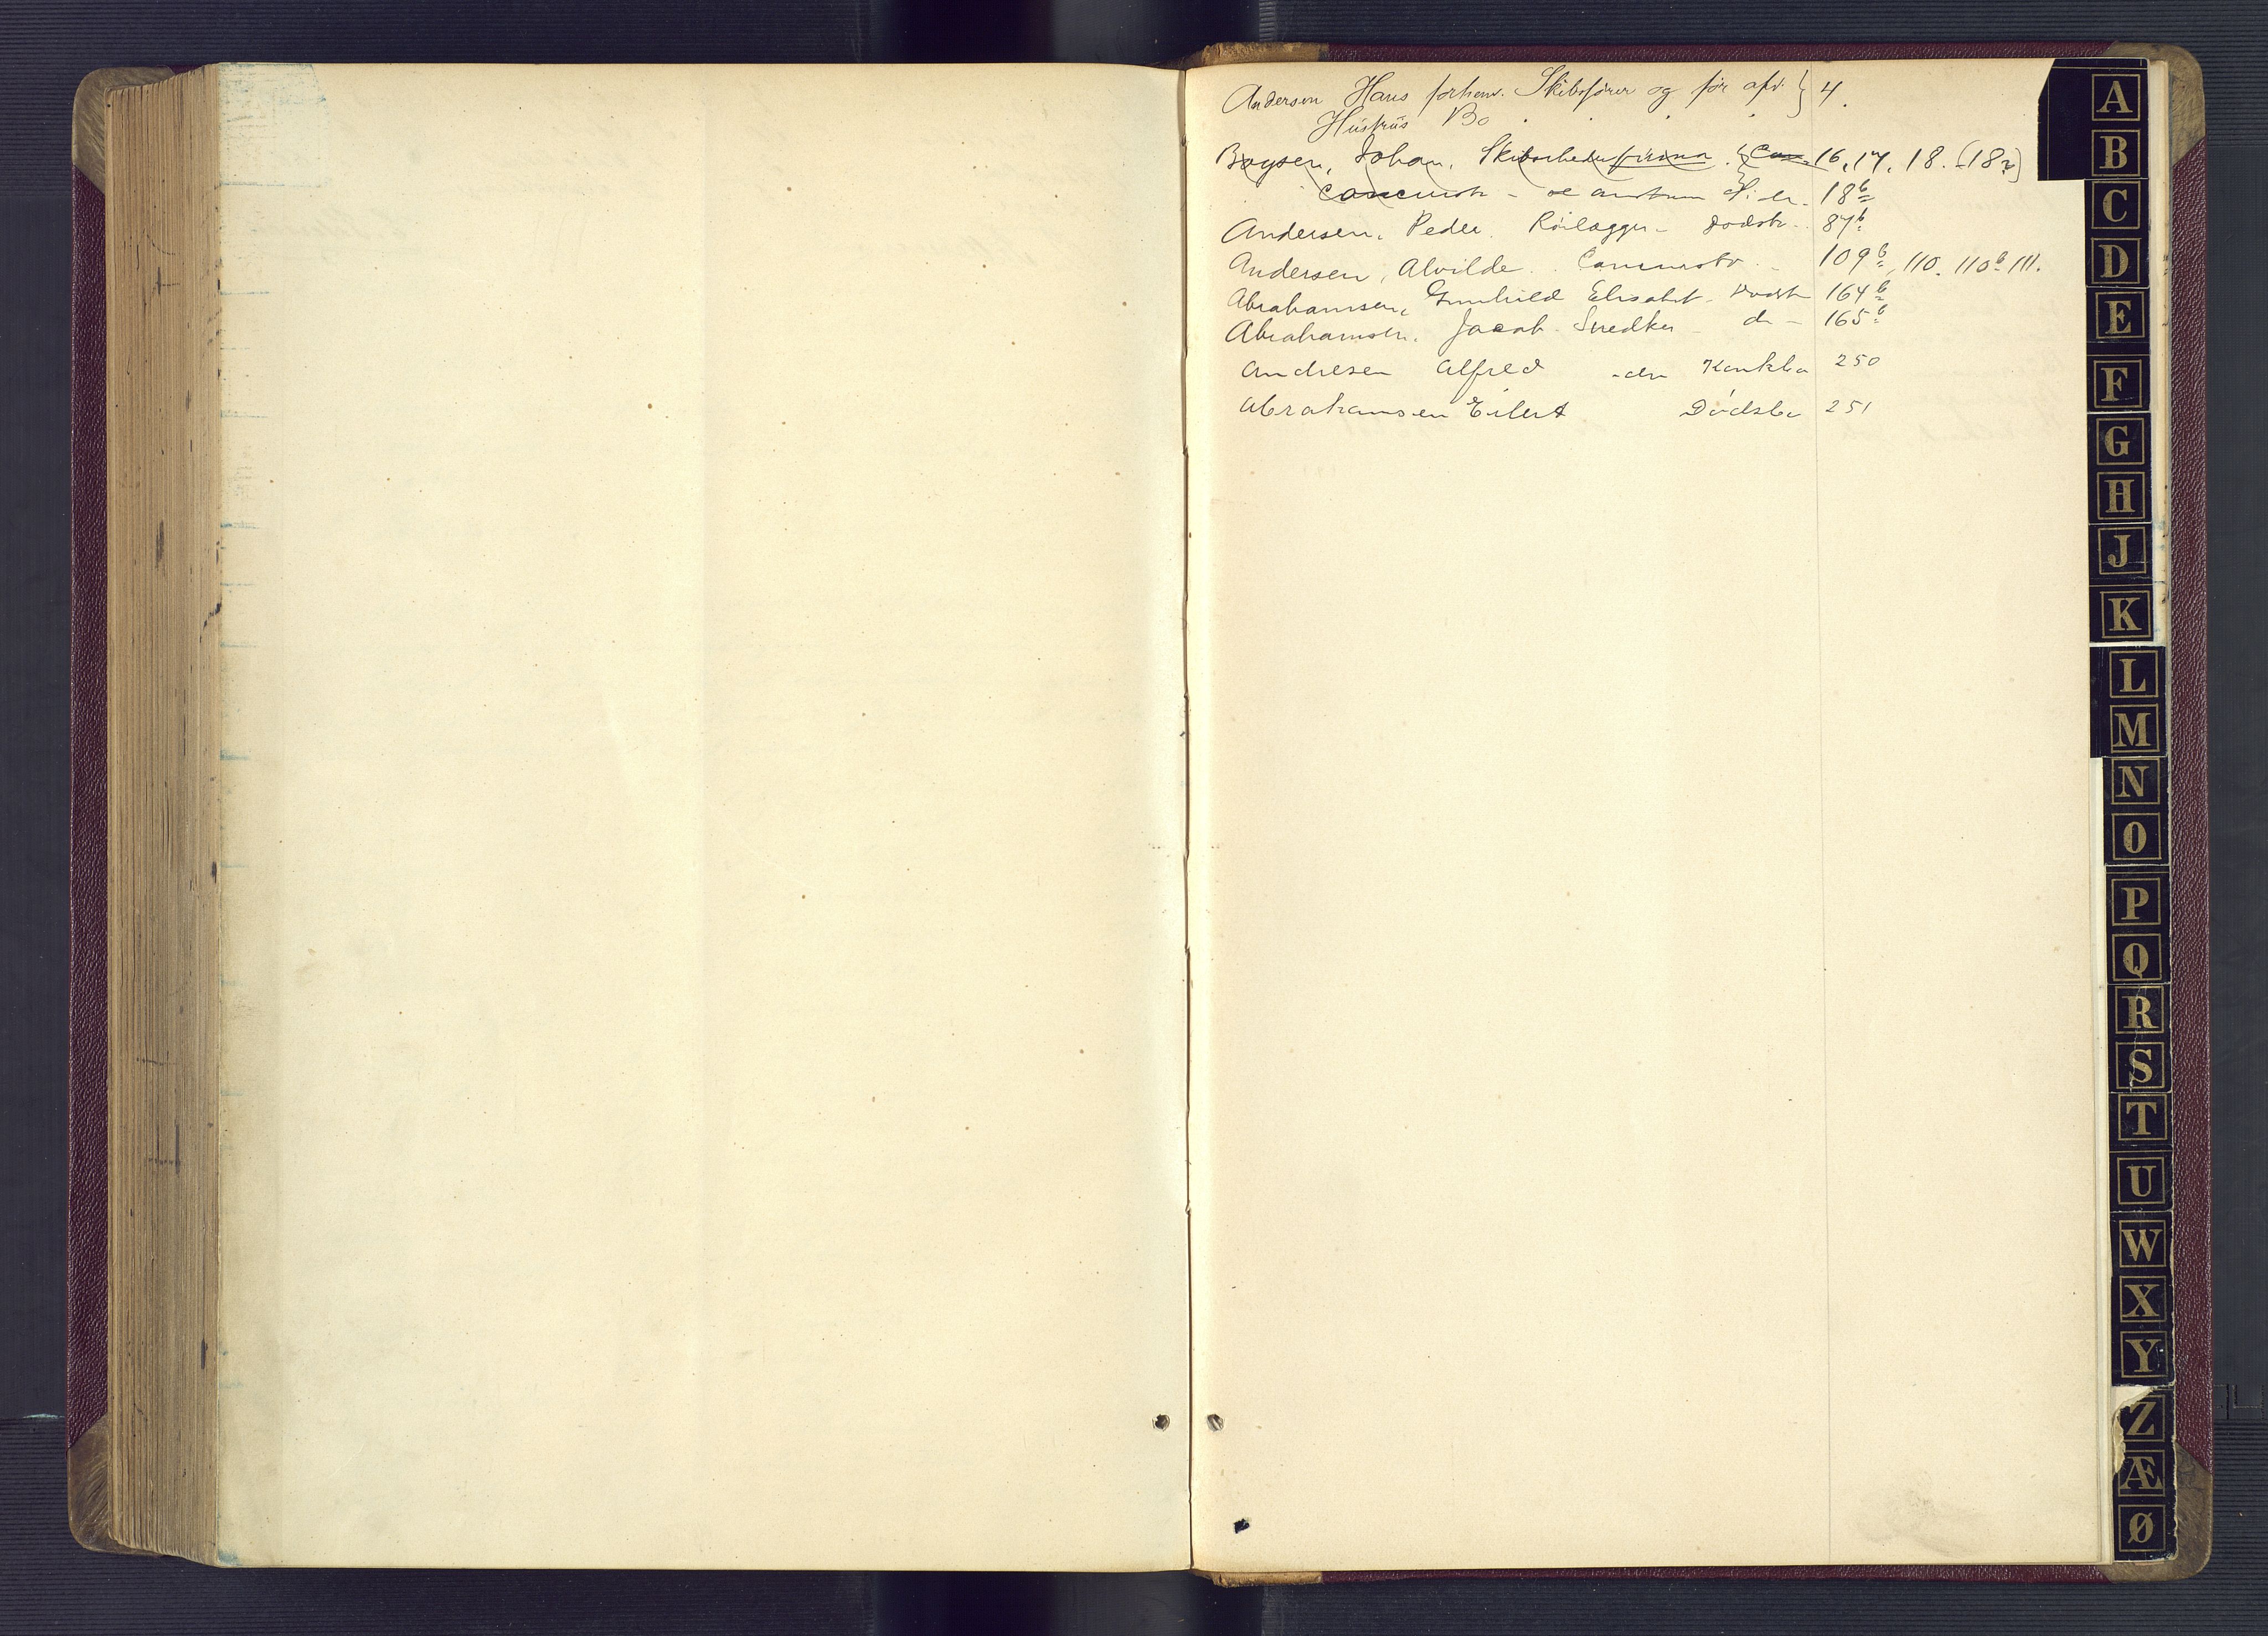 Andersen Hans forhenv. Skibsfører og før afd. } 4.
Hustrus Bo
Boysen, Johan, Skibsrhederfirma. 16, 17, 18. (18
18b
Andersen, Peder. Rørlægger - Dødsb. 87b
Andersen, Alvilde. Concursbo - 109b, 110. 110b 111.
Abrahamsen, Gunhild Elisabet - Dødsb 164b
Abrahamsen, Jacob. Snedker - do - 165b
Andresen Alfred Konkbo 250
Abrahamsen Eilert Dødsbo 251
A
B
C
D
E
F
G
H
J
K
L
M
N
O
P
Q
R
S
T
U
W
X
Y
Z
Æ
Ø